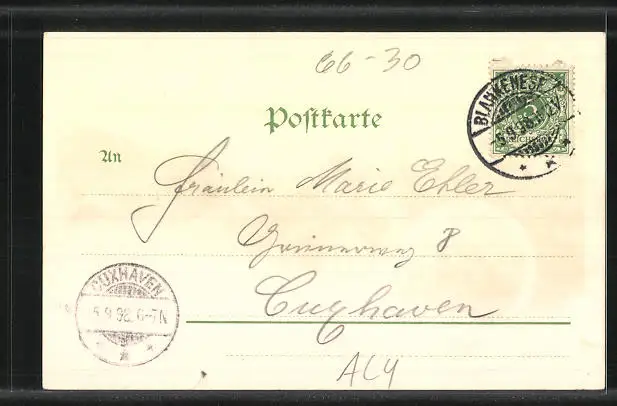 66-30
Postkarte
BLANKENESE
5.9.98.
An
Fräulein Marie Ehler
8
Cuxhaven
CUXHAVEN
5.9.98.6-7N.
ACY